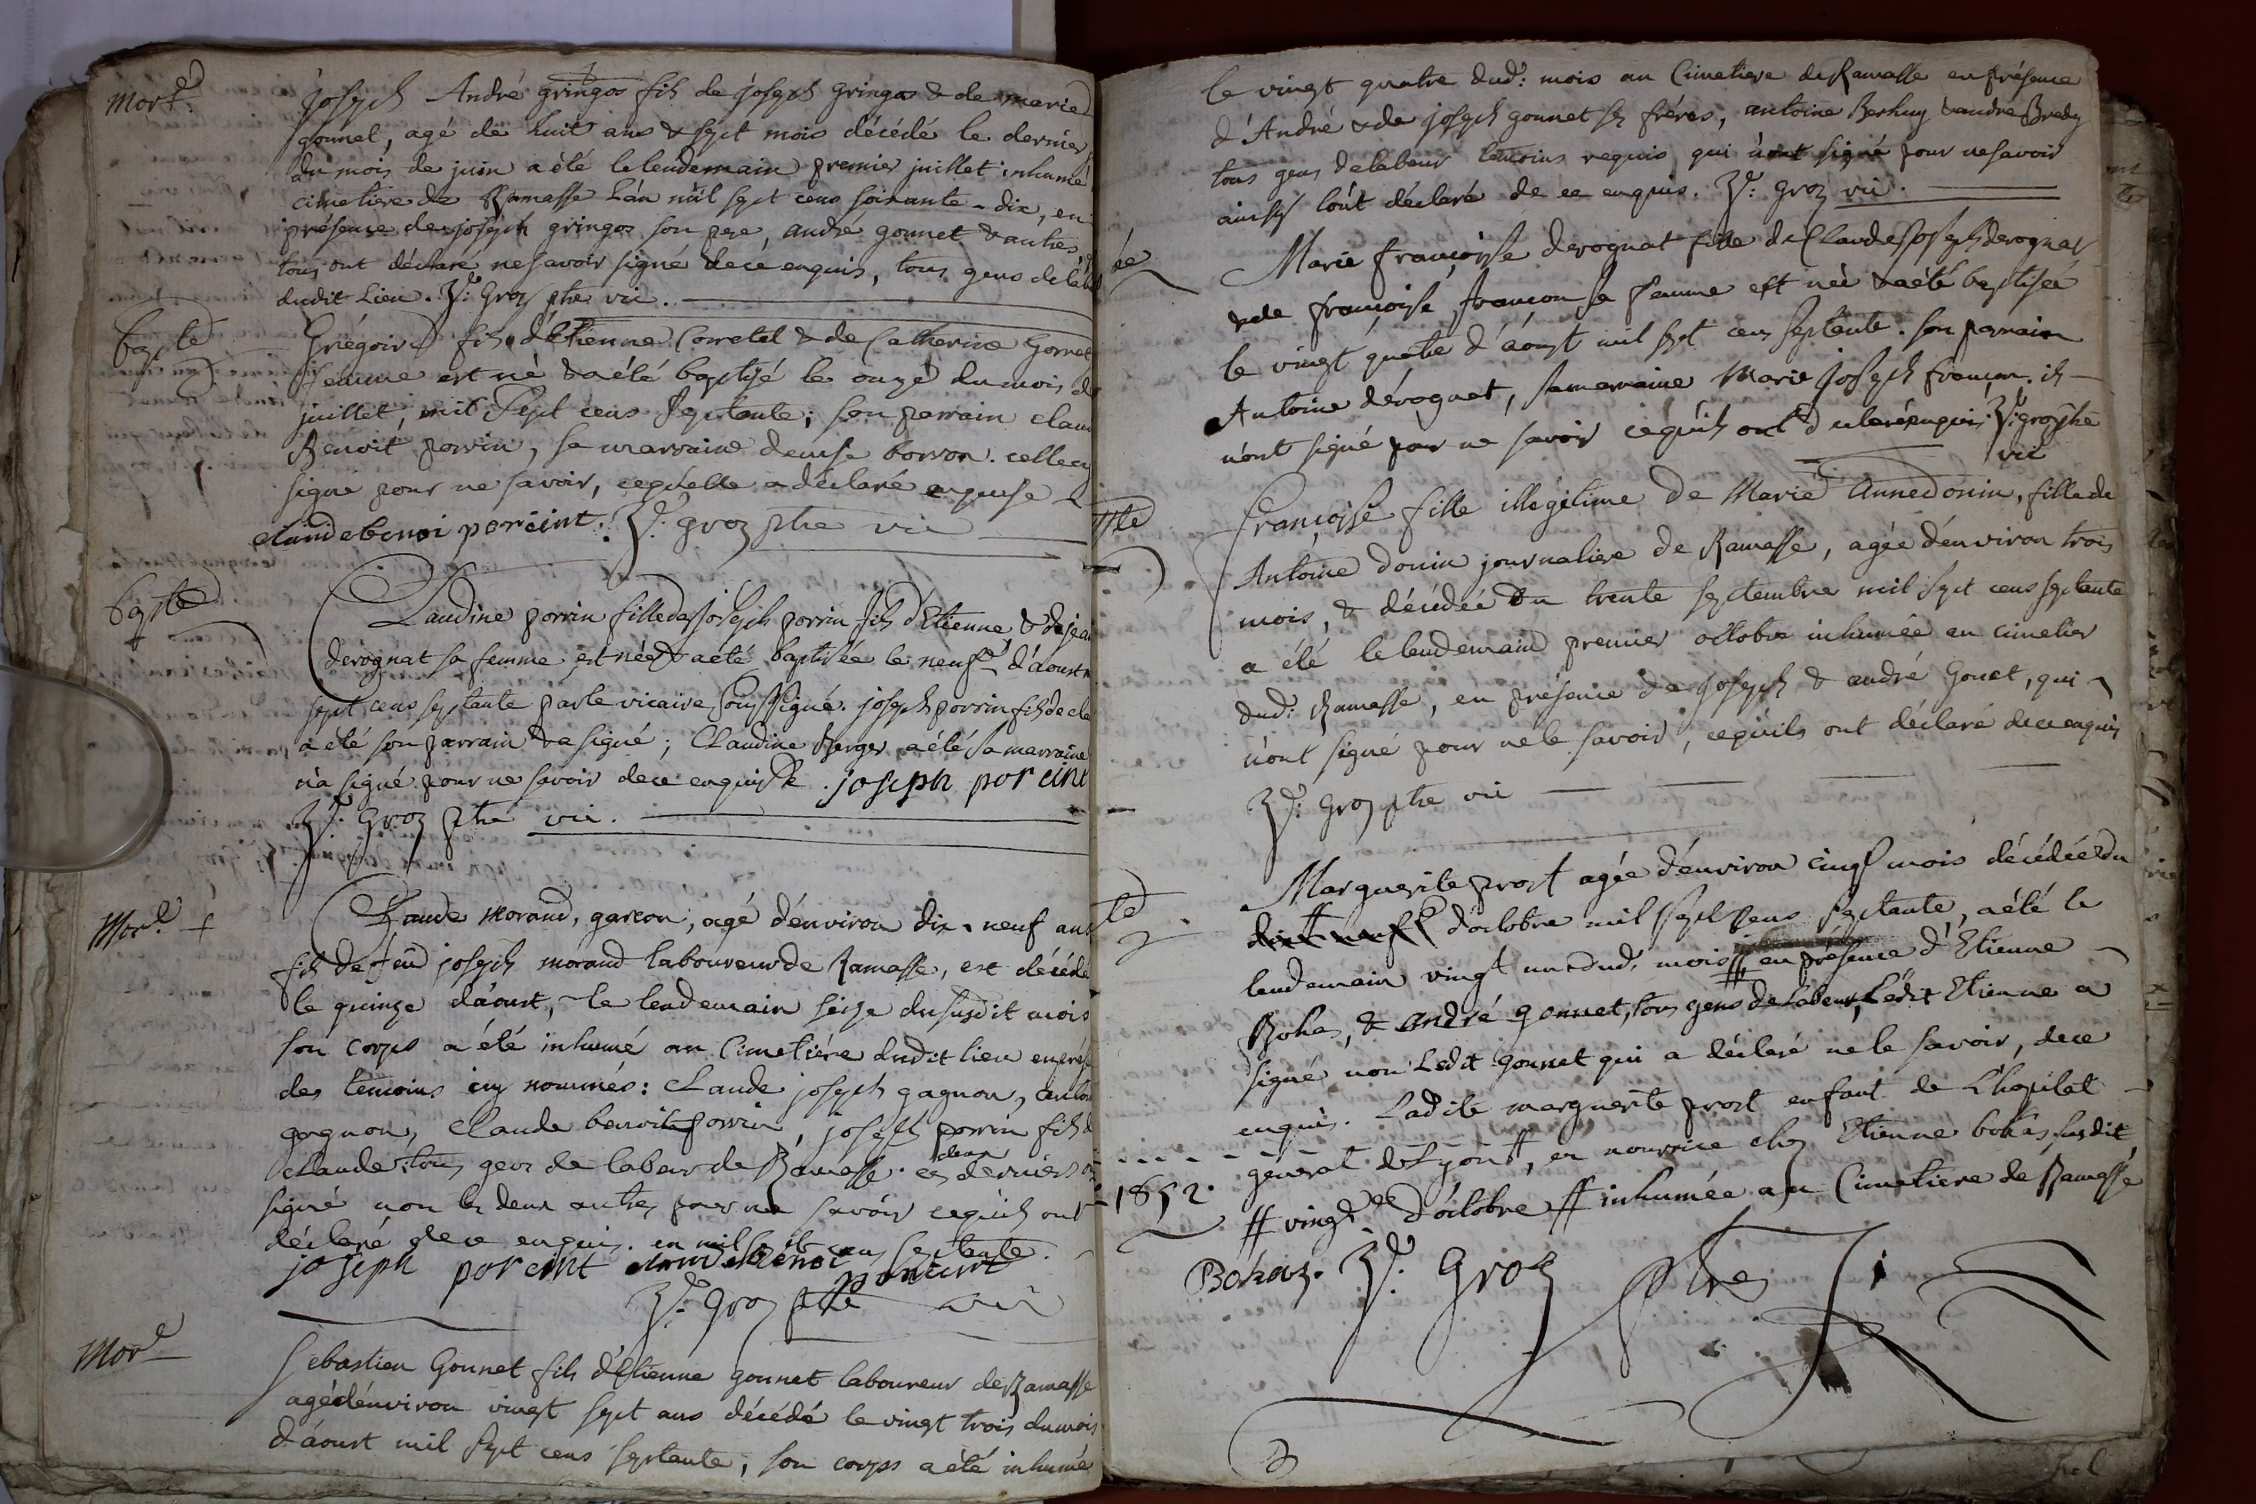 Mort.
Joseph André gringos fils de joseph gringos & de marie
gonnet, agé de huit ans & sept mois décédé le dernier
du mois de juin a été le lendemain premier juillet inhumé
cimetiere de Ramasse L'an mil sept cens soixante-dix, en
présence de joseph gringos son pere, andré gonnet & autres
tous ont déclaré ne savoir signé de ce enquis, tous gens de lab
dudit Lieu. Groz ptre vic.
bapte
Grégoire fils d'Etienne Corretel & de Catherine Gonnet
femme est né & a été baptisé le onze du mois de
juillet, mil sept cens septante; son parrain claud
Benoit porrin, sa marraine denise borron. celle cy
signe pour ne savoir, ce qu'elle a déclaré enquise
claude benoi porcint. Groz ptre vic
bapte
Claudine porrin fille de joseph porrin fils d'Etienne & de jean
derognat sa femme est née & a été baptisée le neufe d'aoust m
sept cens septante par le vicaire soussigné. joseph porrin fils de cla
a été son parrain & a signé; Claudine Berger a été sa marraine
n'a signé pour ne savoir de ce enquise. joseph porcint
Groz ptre vic.
Mort. +
Claude Morand, garçon, agé d'environ dix-neuf ans
fils de feu joseph morand laboureur de Ramasse, est décédé
le quinze d'aoust, le lendemain seize du susdit mois
son corps a été inhumé au Cimetiére dudit lieu en prés
des temoins cy nommés: Claude joseph gagnon, antoi
gagnon, Claude benoit porrin, joseph porrin fils d
Claude: tous gens de labeur de Ramasse. ces deux derniers o
signé non les deux autres pour ne savoir ce qu'ils ont
déclaré de ce enquis. en mil sept cens septante.
joseph porcint claude benoi porcint
Groz ptre vic
Mort
Sebastien Gonnet fils d'Etienne gonnet laboureur de Ramasse
agé d'environ vingt sept ans décédé le vingt trois du mois
d'aoust mil sept cens septante, son corps a été inhumé
le vingt quatre dud: mois au Cimetiere de Ramasse en présence
d'André & de joseph gonnet ses fréres, antoine & andré
tous gens de labeur temoins requis qui n'ont signé pour ne savoir
ainsy l'ont déclaré de ce enquis. Groz vic.
Marie françoise derognat fille de Claude joseph derognat
& de françoise françon sa femme est née & a été baptisée
le vingt quatre d'aoust mil sept cens septante. son parrain
Antoine dérognat, sa marraine Marie Joseph françon. ils
n'ont signé pour ne savoir ce qu'ils ont déclaré enquis Groz ptre
vic
pte
Françoise fille illegitime de Marie Anne donin, fille de
Antoine donin journaliere de Ramasse, agée d'environ trois
mois, & décédée du trente septembre mil sept cens septante
a été le lendemain premier octobre inhumée au cimetier
dud: Ramasse, en présence de joseph & andré Gonet, qui
n'ont signé pour ne le savoir, ce qu'ils ont déclaré de ce enquis
Groz ptre vic
te
Marguerite prost agée d'environ cinq mois décédée du
dix neuf d'octobre mil sept cens septante, a été le
lendemain vingt un dud. mois # en présence d'Etienne
Bohas, & andré gonnet, tous gens de labeur, Ledit Etienne a
signé non Ledit gonnet qui a déclaré ne le savoir, de ce
enquis. Ladite marguerite prost enfant de L'hopital
général de Lyon #, en nourrice chez Etienne bohas susdit
1852.
# vingt d'octobre # inhumée au Cimetiere de Ramasse
Bohas. Groz ptre